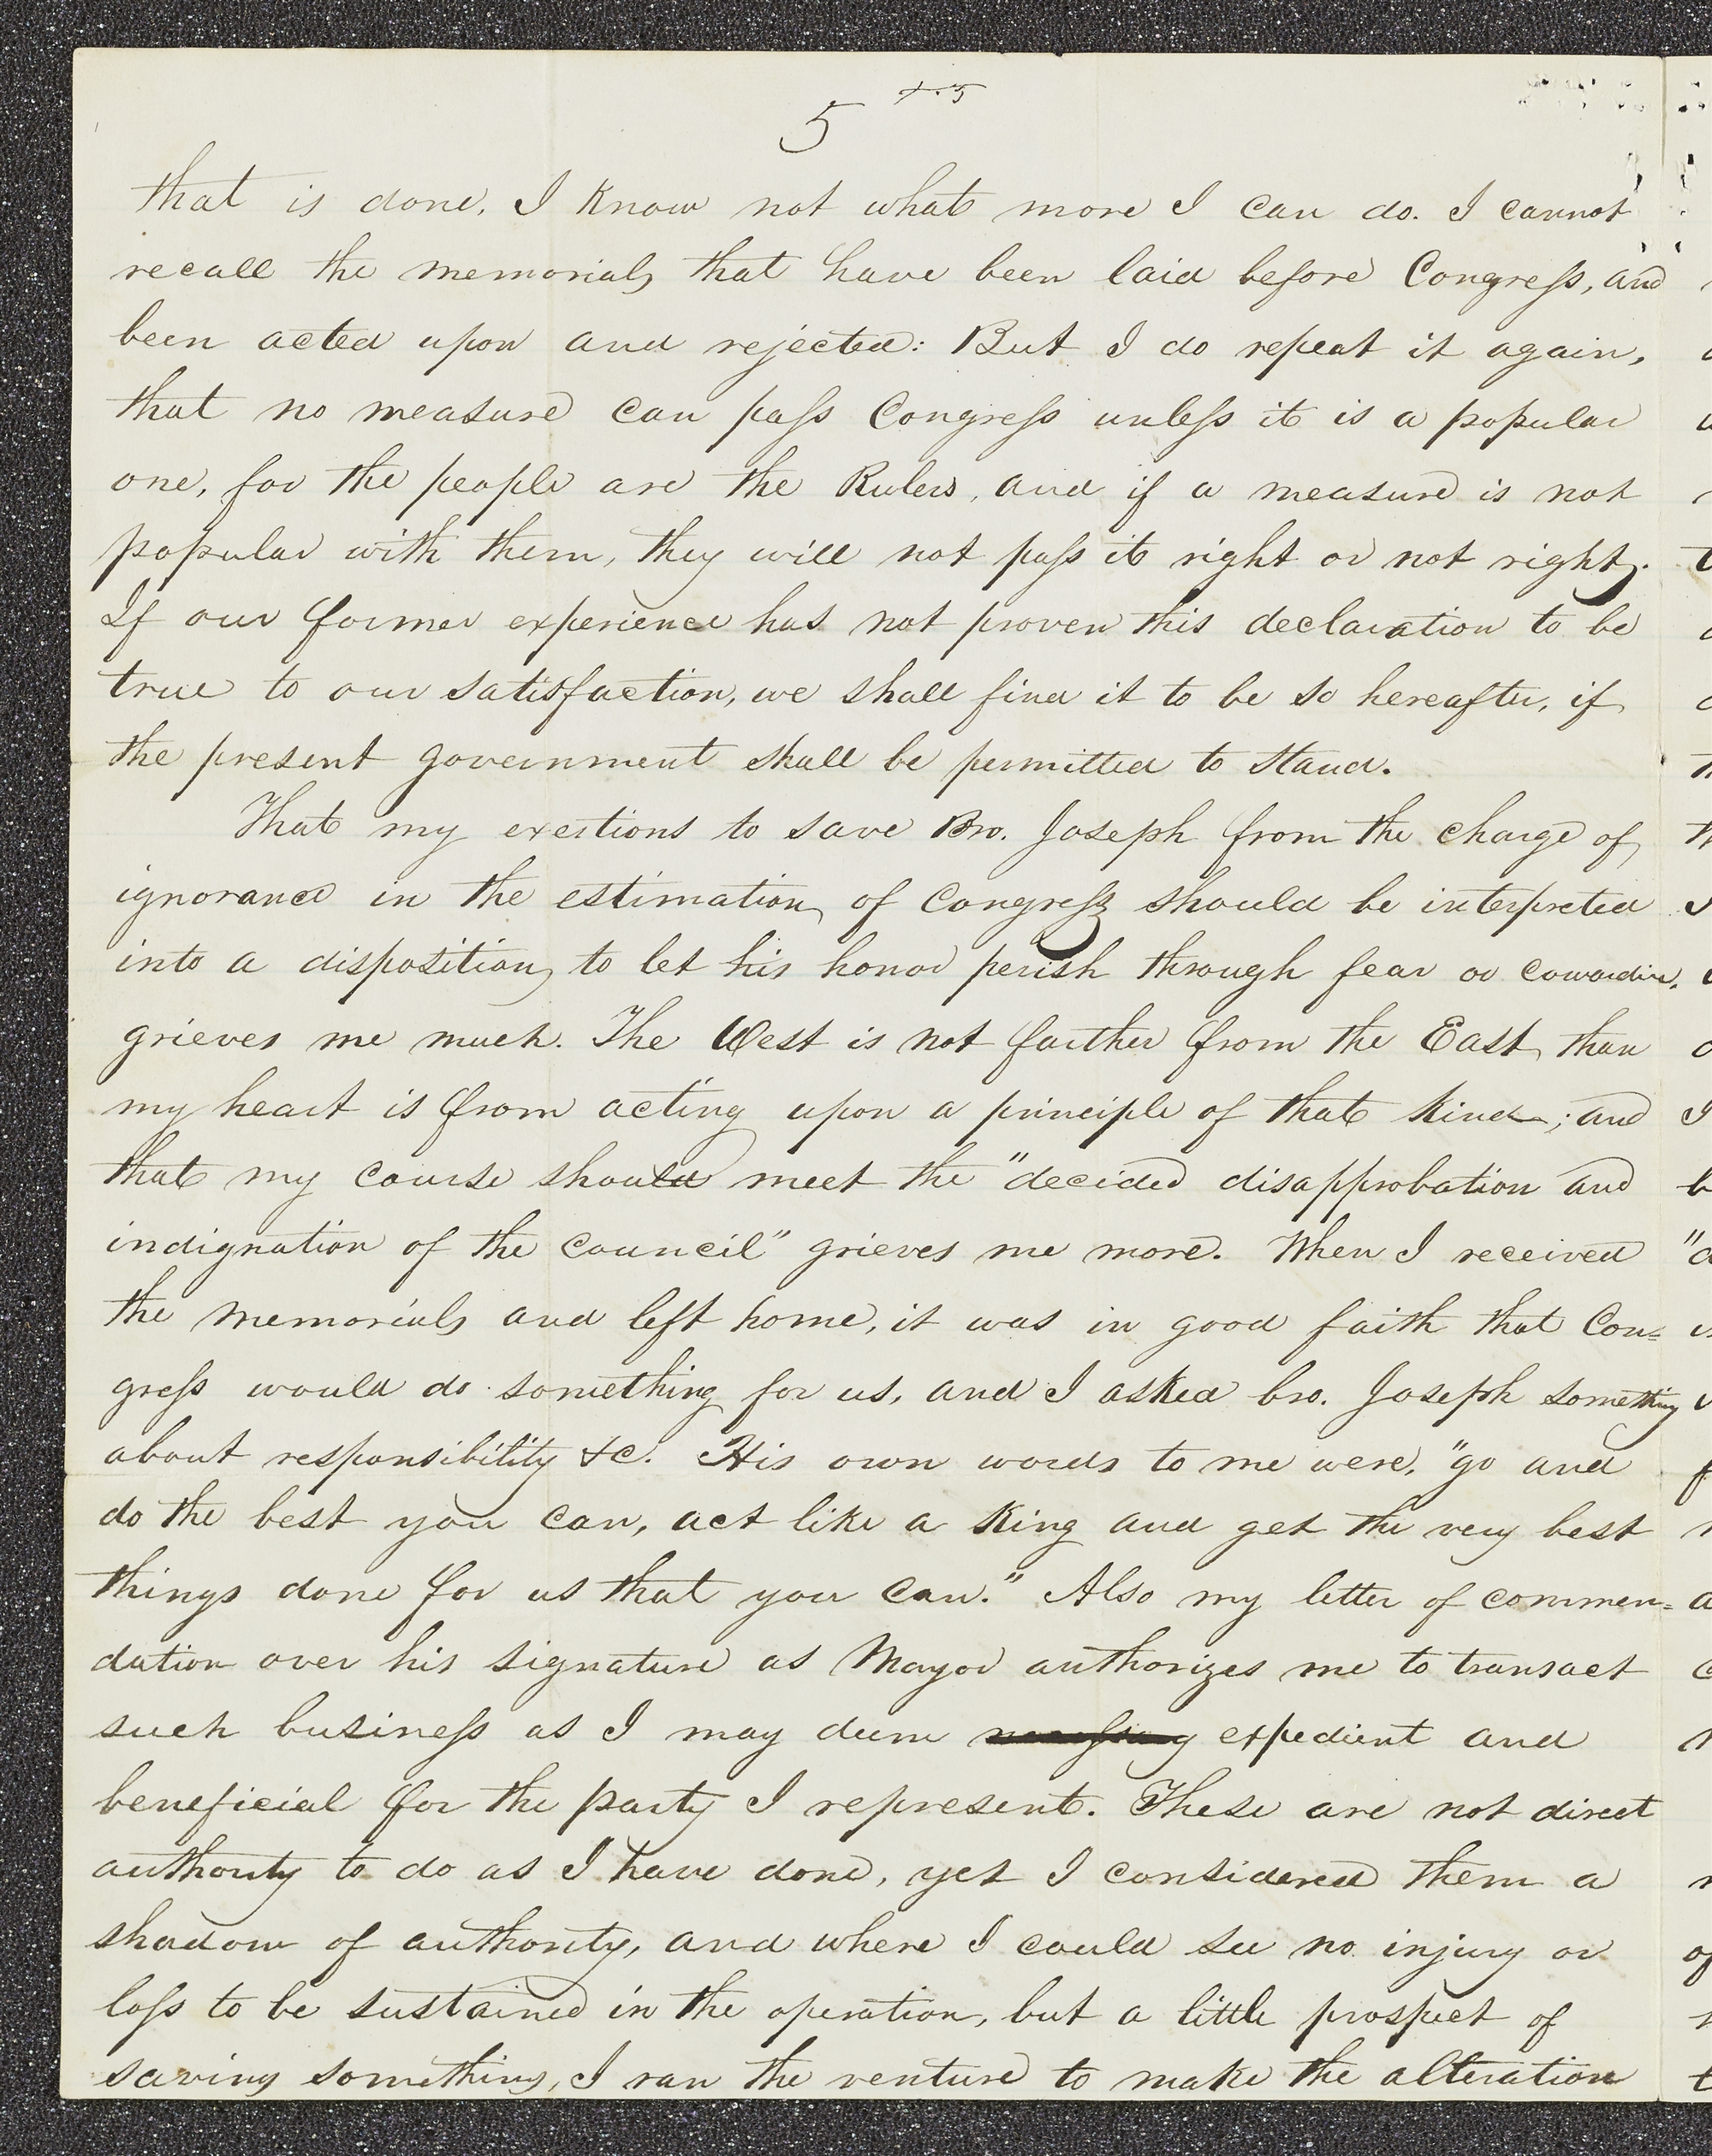 5
that is done, I know not what more I can do. I cannot
recall the memorials that have been laid before Congress, and
been acted upon and rejected: But I do repeat it again,
that no measure can pass Congress unless it is a popular
one, for the people are the Rulers, and if a measure is not
popular with them, they will not pass it right or not right.
If our former experience has not proven this declaration to be
true to our satisfaction, we shall find it to be so hereafter, if
the present government shall be permitted to stand.
That my exertions to save Bro. Joseph from the charge of
ignorance in the estimation of Congress should be interpreted
into a disposition to let his honor perish through fear or cowardice,
grieves me much. The West is not farther from the East than
my heart is from acting upon a principle of that kind; and
that my course should meet the "decided disapprobation and
indignation of the council" grieves me more. When I received
the memorials and left home, it was in good faith that Con=
gress would do something for us, and I asked bro. Joseph something
about responsibility &c. His own words to me were, "go and
do the best you can, act like a King and get the very best
things done for us that you can." Also my letter of commen=
dation over his signature as Mayor authorizes me to transact
such business as I may deem necessary expedient and
beneficial for the party I represent. These are not direct
authority to do as I have done, yet I considered them a
shadow of authority, and where I could see no injury or
loss to be sustained in the operation, but a little prospect of
saving something, I ran the venture to make the alteration